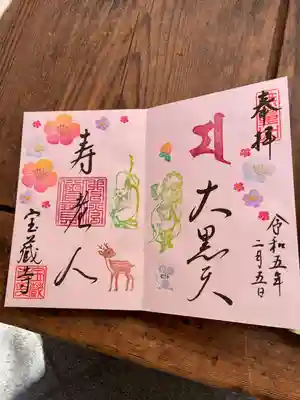 奉拝
大黒天
令和五年
二月五日
寿老人
宝蔵寺